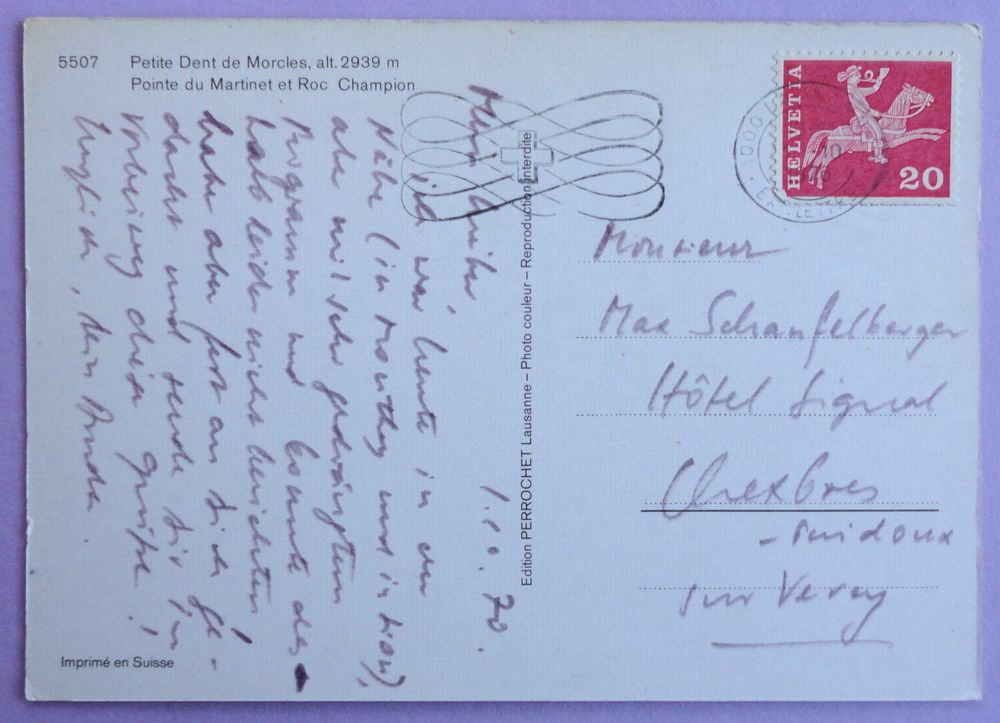 5507 Petite Dent de Morcles, alt. 2939 m
Pointe du Martinet et Roc Champion
HELVETIA
20
1000
1.10.70.
Mein Lieber,
ich war heute in der
Nähe (in Monthey und in Sion),
aber mit sehr gedrängtem
Programm und konnte des-
halb leider nicht herüberkommen!
habe aber fest an dich ge-
dacht und sende dir im
Vorbeiweg diese Grüsse!
Herzlich, dein Bruder.
Edition PERROCHET Lausanne – Photo couleur – Reproduction interdite
Monsieur
Max Schaufelberger
Hôtel Signal
Chexbres
- Puidoux
sur Vevey
Imprimé en Suisse